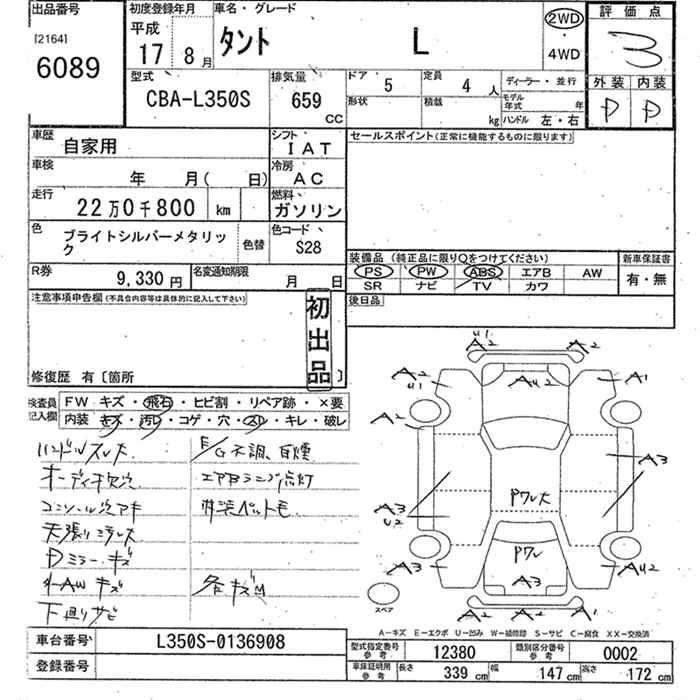 出品番号
[2164]
6089
初度登録年月
平成
17 8月
車名・グレード
タント L
2WD
・
4WD
評価点
3
外装 内装
D D
型式
CBA-L350S
排気量
659
CC
ドア 5
定員 4 人
形状
積載 kg
ディーラー・並行
モデル年式 年
ハンドル 左・右
車歴 自家用
シフト IAT
車検 年 月( 日)
冷房 AC
走行 22万0千800 km
燃料 ガソリン
色 ブライトシルバーメタリック
色替
色コード S28
R券 9,330円
名変通知期限 月 日
セールスポイント(正常に機能するものに限ります)
装備品(純正品に限りOをつけてください)
新車保証書
PS ・ PW ・ ABS ・ エアB ・ AW
SR ・ ナビ ・ TV ・ カワ
有・無
後日品
注意事項申告欄(不具合内容等は具体的に記入して下さい)
初出品
修復歴 有〔箇所 〕
検査員記入欄
FW キズ・飛石・ヒビ割・リペア跡・×要
内装 キズ・汚レ・コゲ・穴・スレ・キレ・破レ
ハンドルスレ大
オーディオ欠品
コンソール穴アキ
天張りシミ大
Dミラーキズ
AWキズ
下廻りサビ
E/G不調、白煙
エアBランプ点灯
内装ペット毛
各キズ凹
U1
A2 A2
A2 U1 AU2 A1
A2
A3
A3 U2
Pワレ大
Pワレ
A3
A3 AU2
A2 A2 A1
スペア
A-キズ E-エクボ U-凹み W-補修跡 S-サビ C-腐食 XX-交換済
車台番号 L350S-0136908
登録番号
型式指定番号 参考 12380
類別区分番号 参考 0002
車庫証明用 参考 長さ 339 cm 幅 147 cm 高さ 172 cm